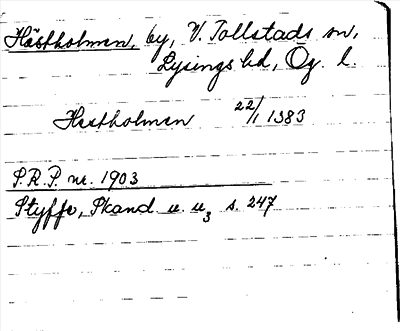 Hästholmen, by, V. Tollstads sn,
Lysings hd, Ög. l.
Hestholmen 22/1 1383
S.R.P. nr. 1903
Styffe, Skand. u. u3 s. 247